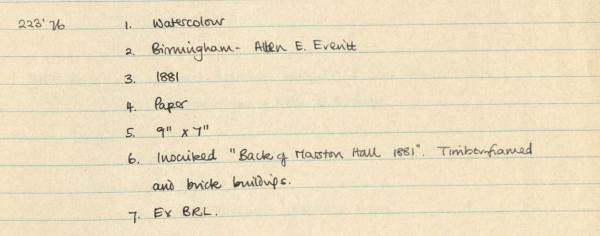 223'76 1. Watercolour
2. Birmingham - Allen E. Everitt
3. 1881
4. Paper
5. 9" x 7"
6. Inscribed "Back of Marston Hall 1881". Timber-framed
and brick buildings.
7. Ex BRL.